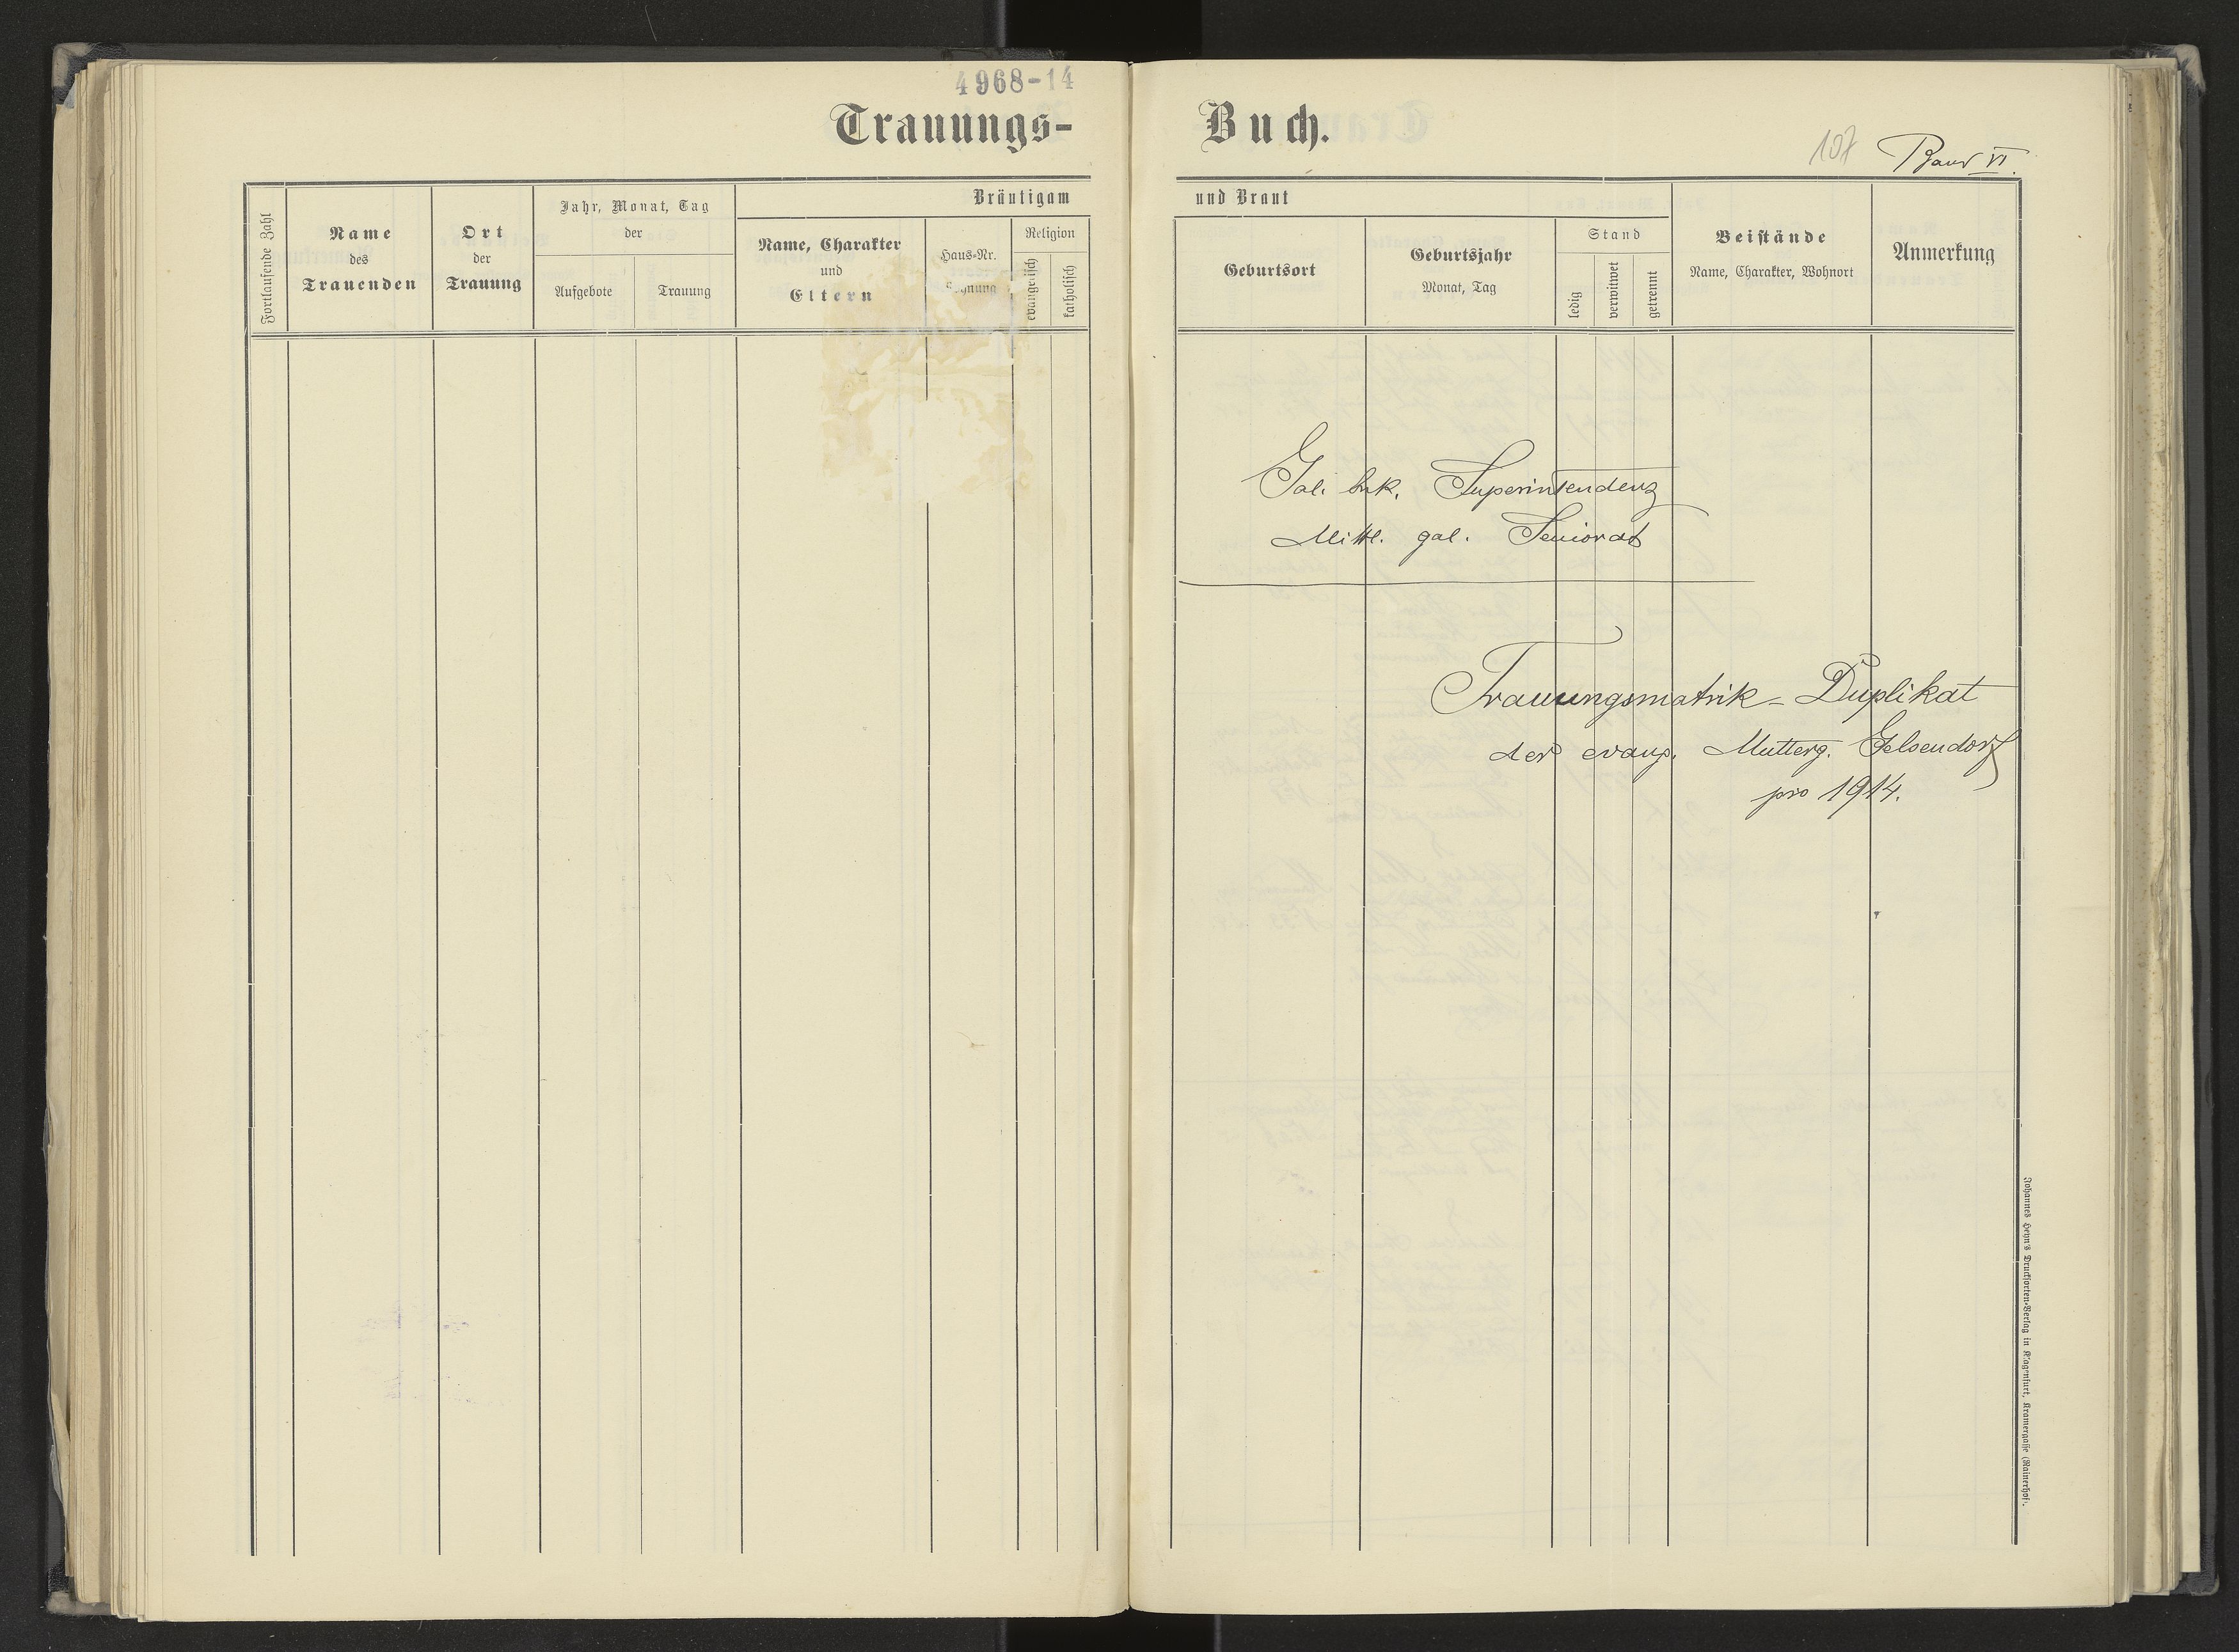 4968-14
Trauungs-
Fortlaufende Zahl
Name
des
Trauenden
Ort
der
Trauung
Jahr, Monat, Tag
der
Aufgebote
Trauung
Bräutigam
Name, Charakter
und
Eltern
Haus-Nr.
Religion
evangelisch
katholisch
Buch.
107
Band VI.
und Braut
Geburtsort
Geburtsjahr
Monat, Tag
Stand
ledig
verwitwet
getrennt
Beistände
Name, Charakter, Wohnort
Anmerkung
Gali buk. Superintendenz
Mittl. gal. Seniorat
Trauungsmatrik-Duplikat
der evang. Mutterg. Gelsendorf
pro 1914.
Johannes Heyn's Drucksorten-Verlag in Klagenfurt, Kramergasse (Rainerhof).